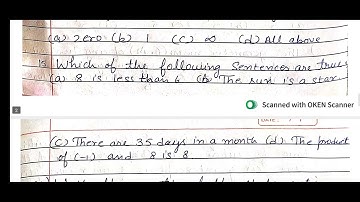 (a) zero (b) 1 (c) ∞ (d) All above
15 Which of the following sentences are true
(a) 8 is less than 6 (b) The sun is a star
Scanned with OKEN Scanner
(c) There are 35 days in a month (d) The product
of (-1) and 8 is 8